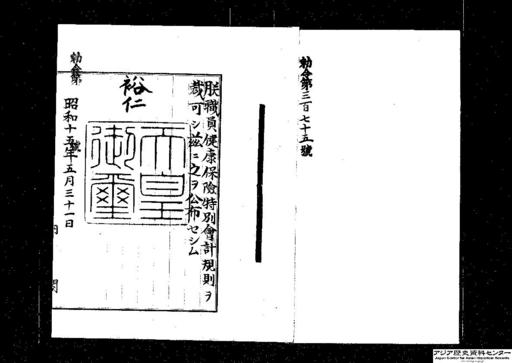 勅令第三百七十五號
朕職員健康保險特別會計規則ヲ
裁可シ茲ニ之ヲ公布セシム
裕仁
天皇
御璽
昭和十五年五月三十一日
勅令第
號
内
閣
アジア歴史資料センター
Japan Center for Asian Historical Records